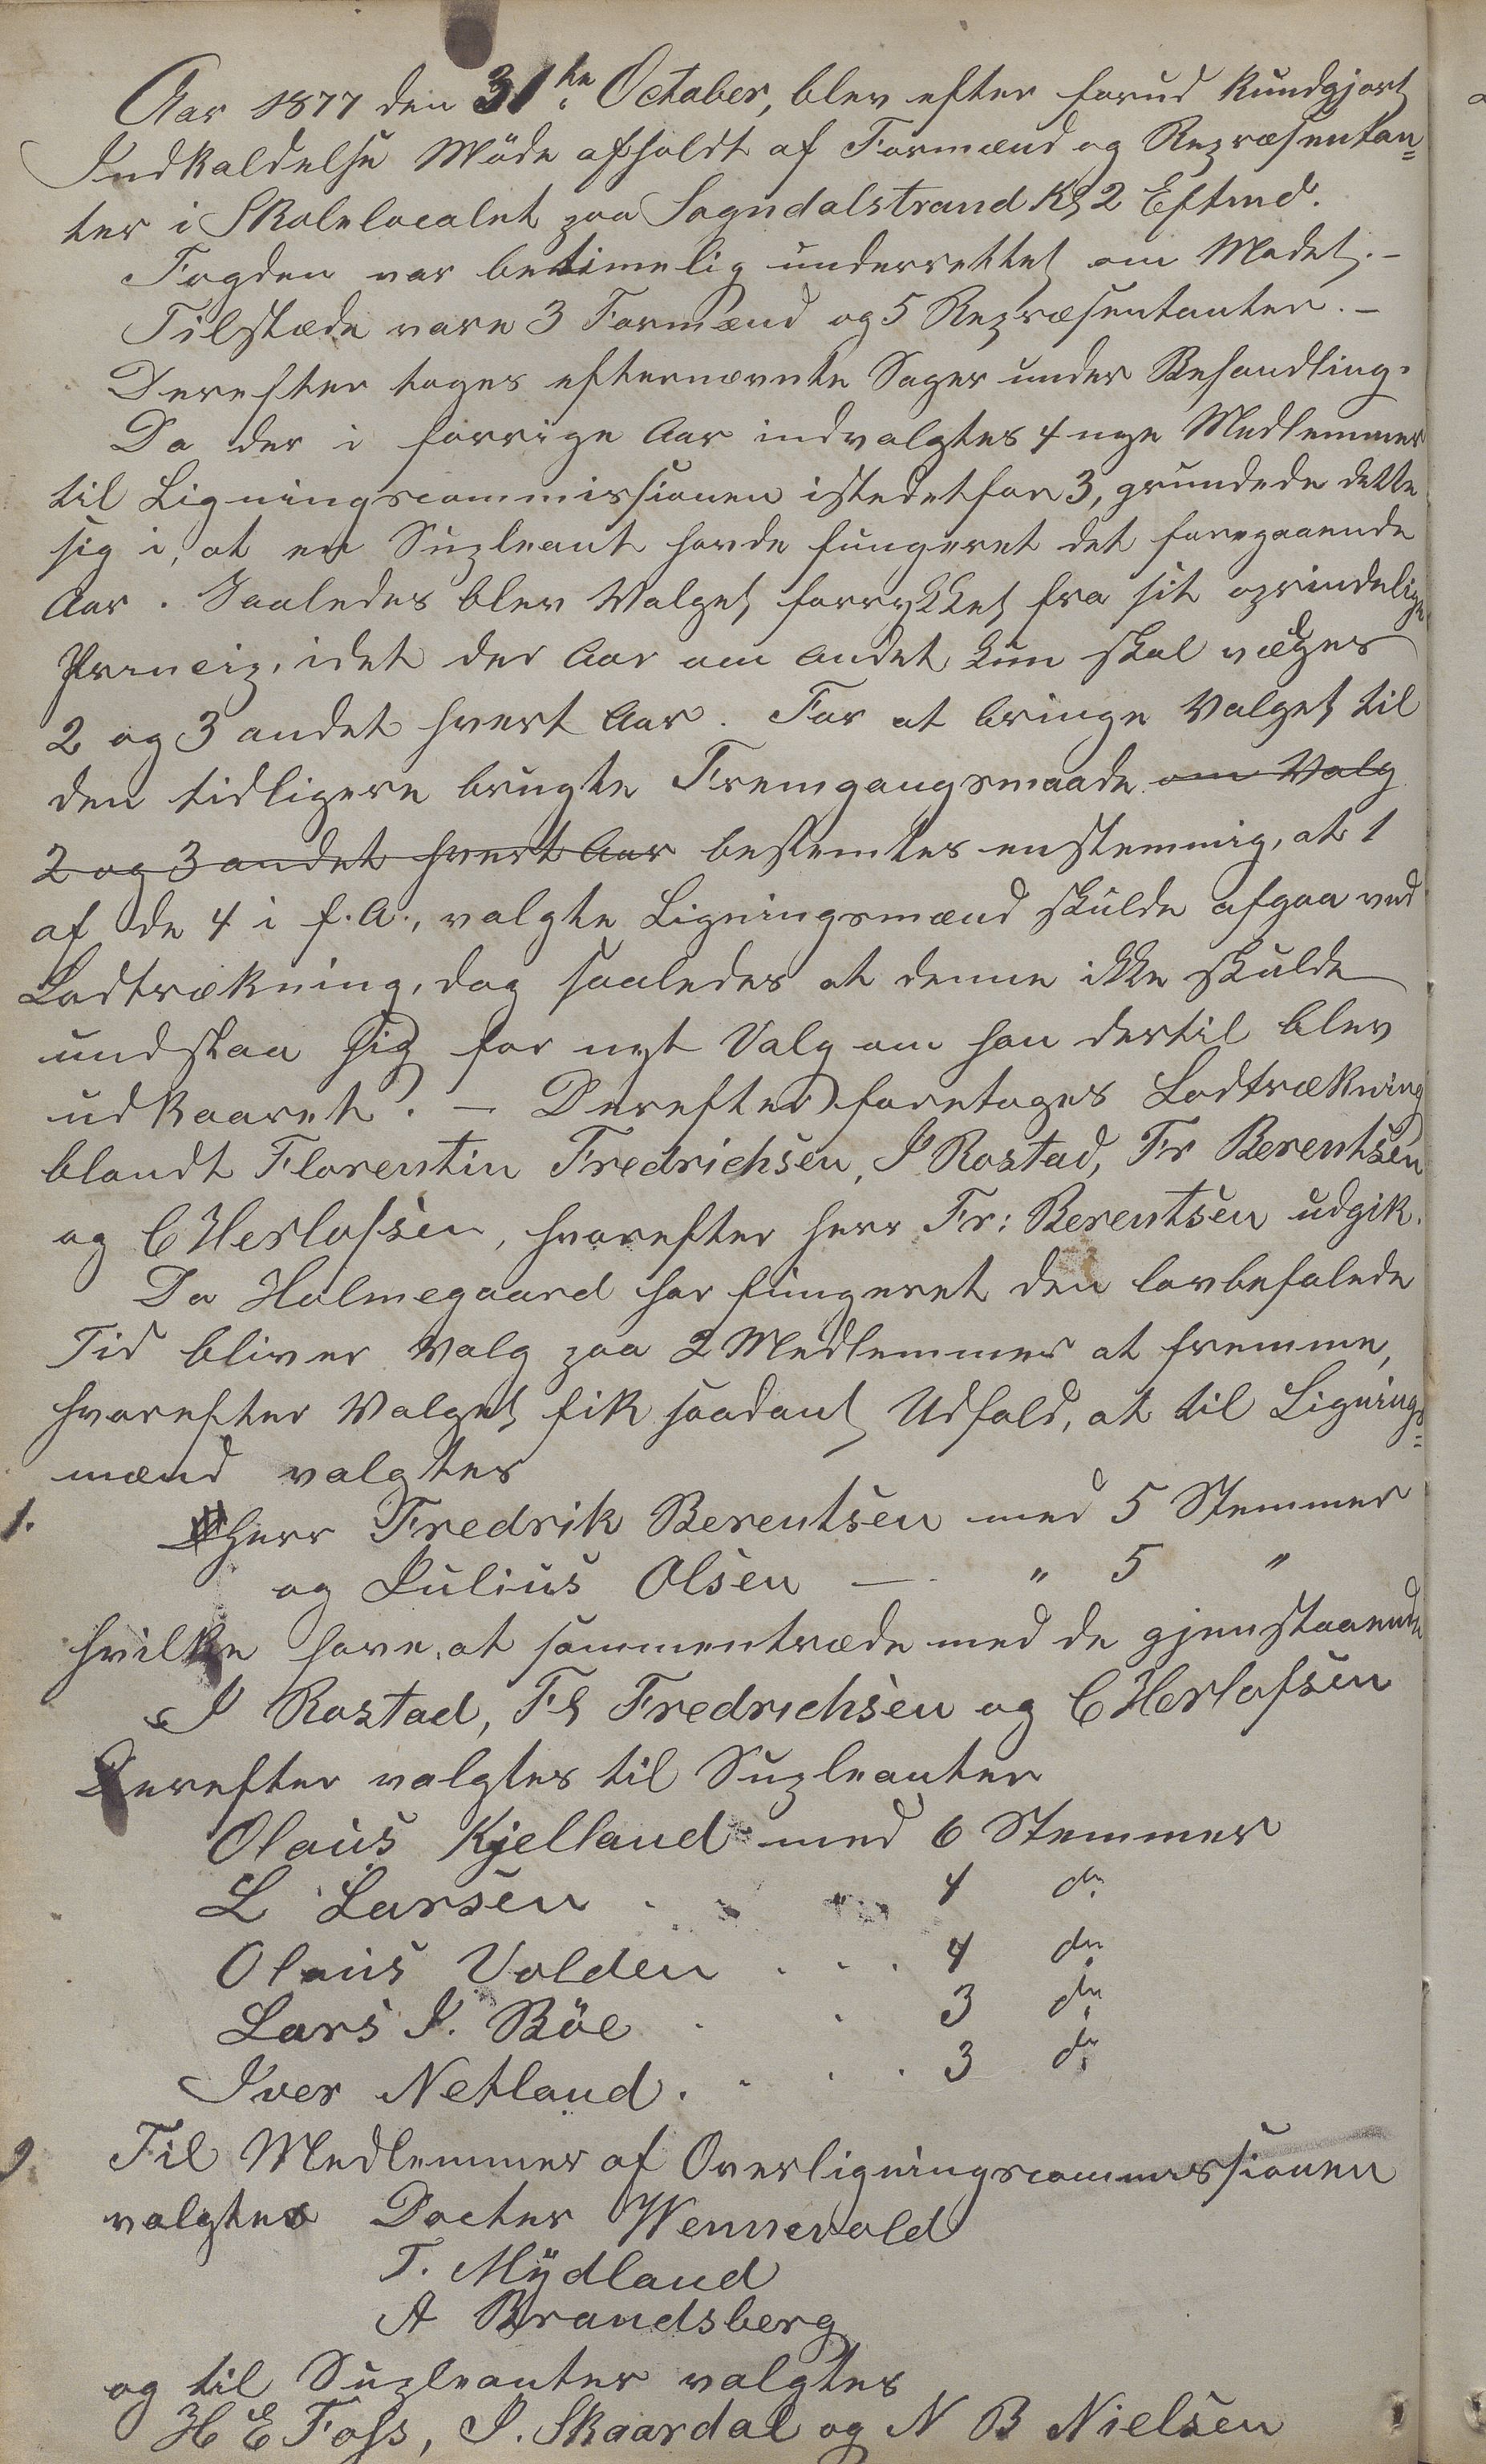 Aar 1877 den 31te October, blev efter forud kundgjort
Indkaldelse Möde afholdt af Formænd og Repræsentan=
ter i Skolelocalet paa Sogndalstrand Kl 2 Eftmd.
Fogden var betimelig underrettet om Mødet. –
Tilstæde vare 3 Formænd og 5 Repræsentanter. –
Derefter toges efternævnte Sager under Behandling.
Da der i forrige Aar indvalgtes 4 nye Medlemmer
til Ligningscommissionen istedetfor 3, grundede dette
sig i, at en Supleant havde fungeret det foregaaende
Aar. Saaledes blev Valget forrykket fra sit oprindelige
Princip, idet der Aar om andet kun skal vælges
2 og 3 andet hvert Aar. For at bringe Valget til
den tidligere brugte Fremgangsmaade om Valg
2 og 3 andet hvert Aar bestemtes enstemmig, at 1
af de 4 i f. A., valgte Ligningsmænd skulde afgaa ved
Lodtrækning, dog saaledes at denne ikke skulde
undslaa sig for nyt Valg om han dertil blev
udkaaret. – Derefter foretoges Lodtrækning
blandt Florentin Fredrichsen, J Rostad, Fr Berentsen
og C Herlofsen, hvorefter Herr Fr: Berentsen udgik.
Da Holmegaard har fungeret den lovbefalede
Tid bliver Valg paa 2 Medlemmer at fremme,
hvorefter Valget fik saadant Udfald, at til Lignings=
mænd valgtes
1. Herr Fredrik Berentsen med 5 Stemmer
og Julius Olsen — " 5 "
hvilke have at sammentræde med de gjenstaaende
J Rostad, Fl Fredrichsen og C Herlofsen
Derefter valgtes til Supleanter
Olaus Kjelland med 6 Stemmer
L Larsen . . " . 4 do
Olaus Volden . . . 4 do
Lars J. Böe . . 3 do
Iver Netland . . . . 3 do
2. Til Medlemmer af Overligningscommissionen
valgtes Doctor Wennevold
T. Mÿdland
A Brandsberg
og til Supleanter valgtes
H E Foss, J. Skaardal og N B Nielsen